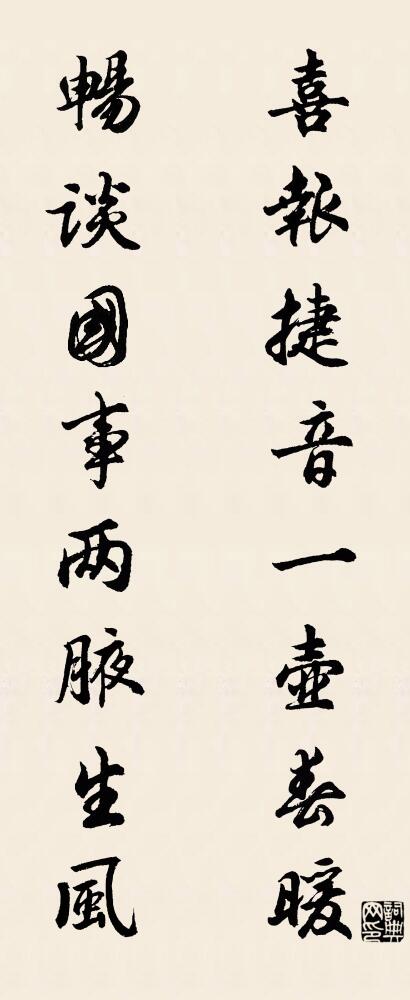 喜報捷音一壺春暖
暢談國事两腋生風
詞典网印